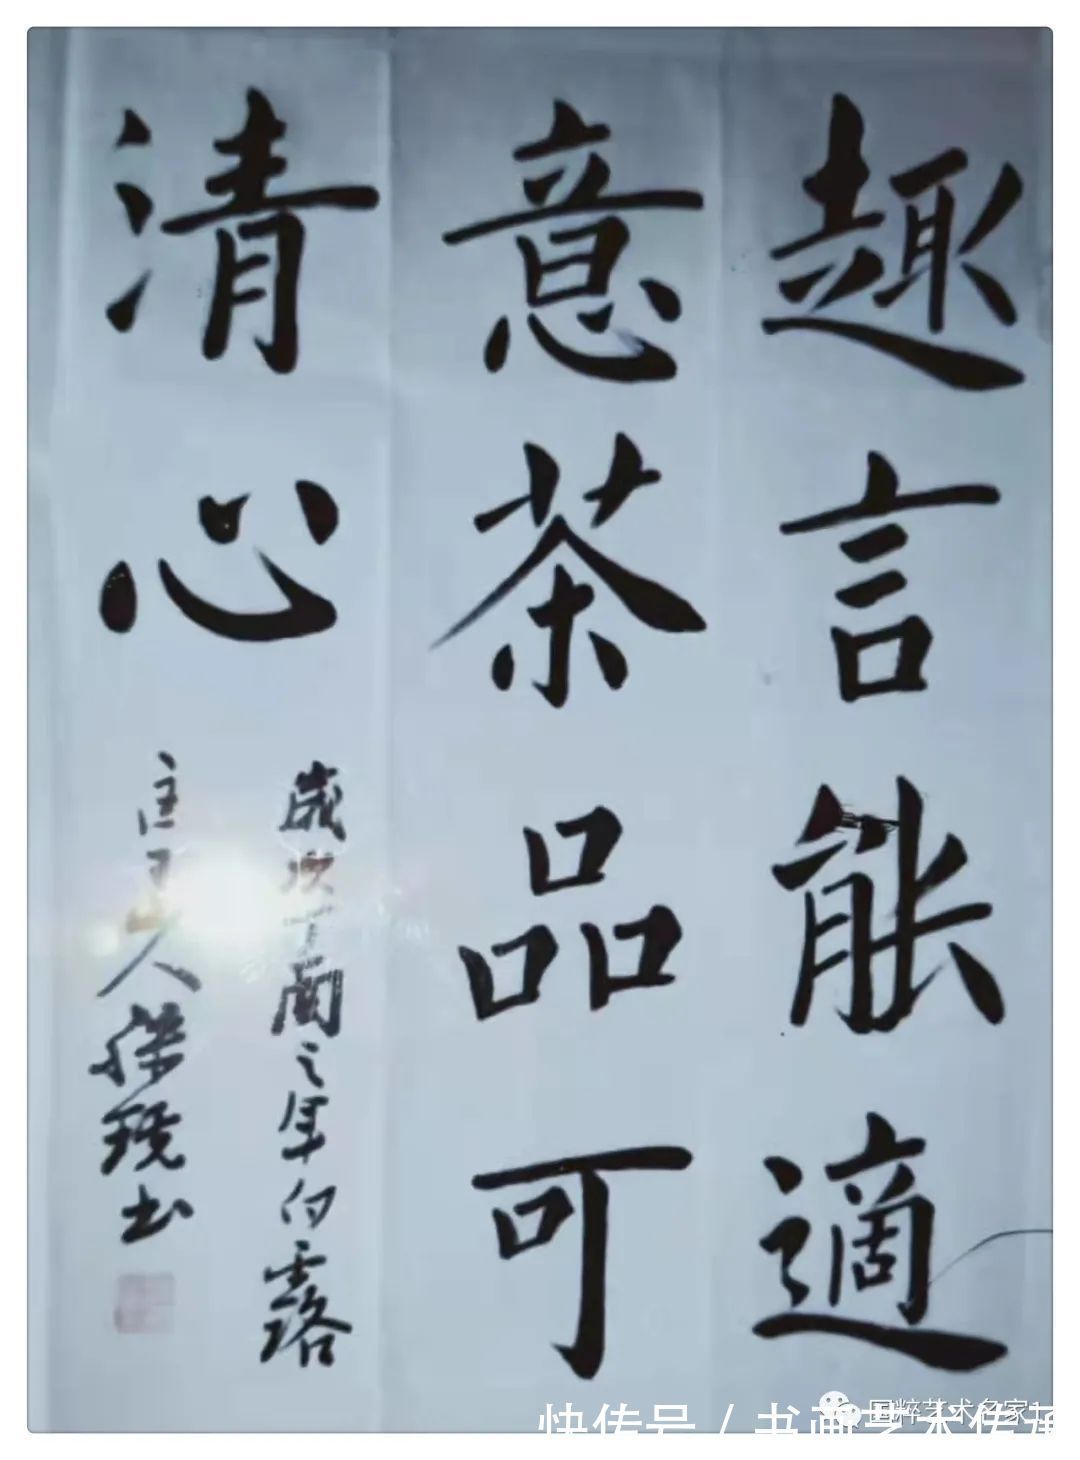 趣言能適
意茶品可
清心
歲次丁酉之年白露
人
书
国粹艺术名家
快传号 / 书画艺术传承